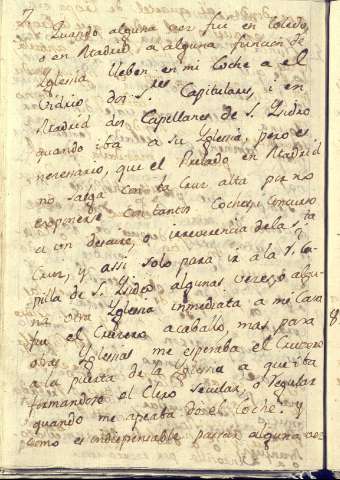 7
Quando alguna vez fui en toledo,
o en Madrid, a alguna funcion de
Yglesia lleben en mi Coche a el
dos S.res Capitulares, i en
Madrid dos Capellanes de S. Ysidro
quando iba a su Yglesia, pero es
necesario, que el Prelado en Madrid
no salga con la Cruz alta por no
exponerse con tantos Coches, i concurso
a un desaire, o irreverencia de la S.ta
Cruz, y assi solo para ir a la R.l Ca-
pilla de S. Ysidro algunas veces, o algu-
na otra Yglesia inmediata a mi Casa
fui el Crucero a caballo, mas para
otras Yglesias me esperaba el Crucero
a la puerta de la Yglesia a que iba
formandose el Clero Secular, o regular
quando me apeaba del Coche. y
como es indispensable passar alguna vez
8